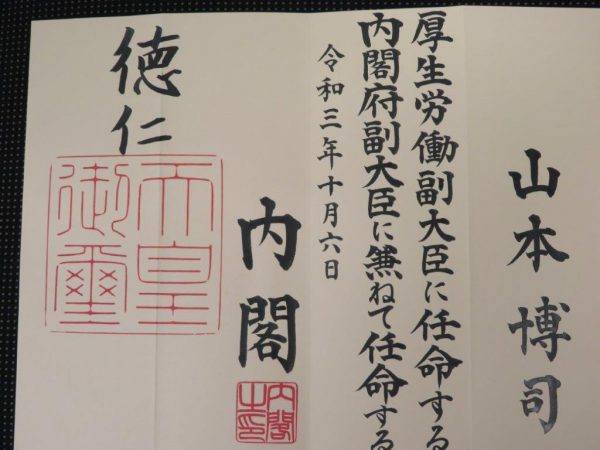 山本博司
厚生労働副大臣に任命する
内閣府副大臣に兼ねて任命する
令和三年十月六日
内閣
内閣之印
徳仁
天皇御璽